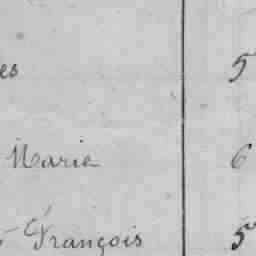 es 5
Marie 6
François 5